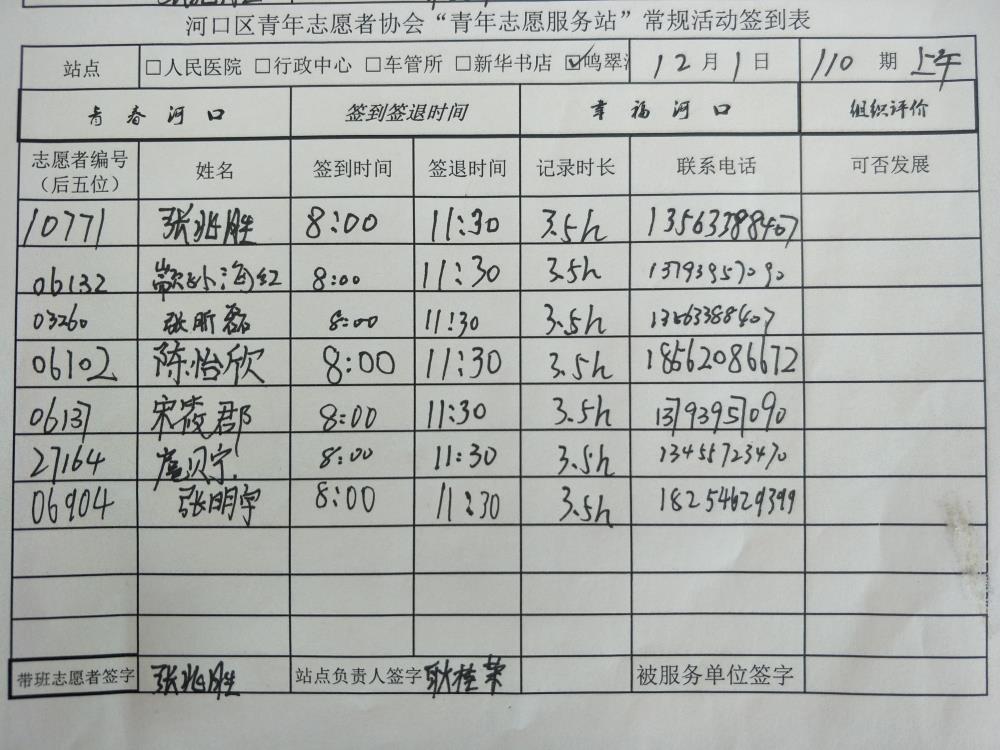 河口区青年志愿者协会“青年志愿服务站”常规活动签到表
站点 □人民医院 □行政中心 □车管所 □新华书店 ☑鸣翠湖 12月1日 110期 上午
青春河口 签到签退时间 幸福河口 组织评价
志愿者编号（后五位） 姓名 签到时间 签退时间 记录时长 联系电话 可否发展
10771 张兆胜 8:00 11:30 3.5h 13563388407
06132 海红 8:00 11:30 3.5h 13793957090
03260 张昕磊 8:00 11:30 3.5h 13563388407
06102 陈怡欣 8:00 11:30 3.5h 18562086672
06137 宋筱郡 8:00 11:30 3.5h 13793957090
27164 贝宁 8:00 11:30 3.5h 13455723470
06904 张明宇 8:00 11:30 3.5h 18254629399
带班志愿者签字 张兆胜 站点负责人签字 耿桂荣 被服务单位签字